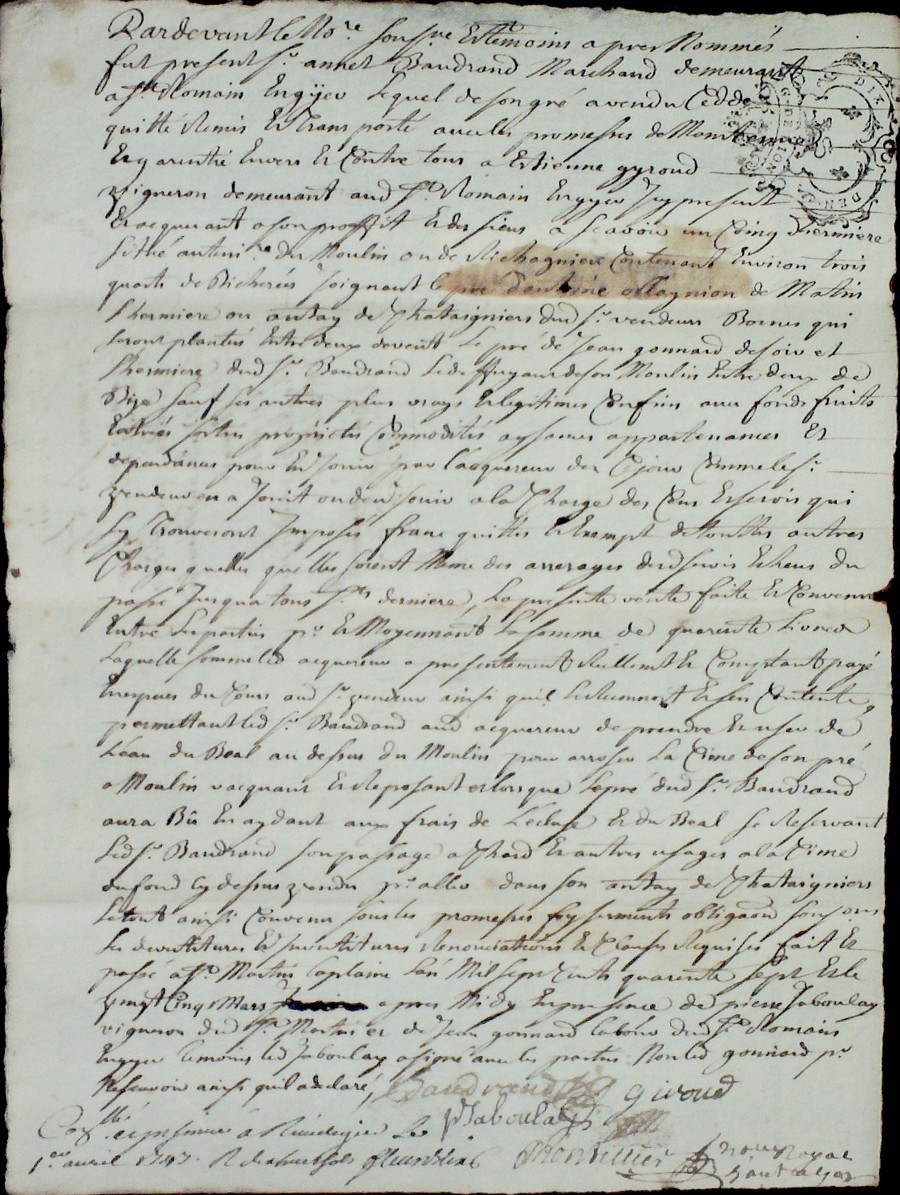 Pardevant le No.re sousné Et témoins apres Nommés
fut present Sr. annet Baudrand Marchand demeurant
a St. Romain Engyer Lequel de son gré a vendu Cedde
quitté Remis Et Transporté avec les promesses de Maintenir
Et garentir Envers Et Contre tous a Estienne gyroud
vigneron demeurant aud St. Romain Engyer Icy present
Et acquerant a son proffit Et des siens a Scavoir un Coing d'hermiere
sithé au terri.re du Moulin ou de Richagniere Contenant Environ trois
quarts de Bicherées Joignant le pré d'antoine ollagnion de Matin
l'hermiere ou autay de Chataigniers dud Sr. vendeur Bornes qui
seront plantées Entre deux devent Le pré de Jean gonnard de soir et
l'hermiere dud Sr. Baudrand de son Moulin Entre deux de
Bize sauf ses autres plus vrays Et legitimes Confins avec fonds fruits
Entrées sorties proprietés Commodités aysances appartenances Et
dependances pour En Jouir par l'acquereur des Ce jour Comme le Sr.
vendeur en a Jouit ou deu Jouir a la Charge des Cens Et servis qui
sy Trouveront Imposés franc quitte Et Exempt de touttes autres
Charges quelles quelles soient Meme des arrerages desd servis Echeus du
passé Jusqua tous Sts derniere, La presente vente faite Et Convenue
Entre Les parties pr. Et Moyennant La somme de quarente Livres
Laquelle somme led acquereur a presentement Reellement Et Comptant payé
En especes du Cours aud Sr. vendeur ainsi quil Et sen Contente,
permettant led Sr. Baudrand aud acquereur de prendre Et user de
L'eau du Beal au dessus du Moulin pour arroser La Cime de son pré
a Moulin vacquant Et Reposant et lorsque Le pré dud Sr. Baudrand
aura Bû En aydant aux frais de L'ecluse Et du Beal se Reservant
Led Sr. Baudrand son passage a Chard Et autres usages a la Cime
du fond Cy dessus vendu pr. aller dans son autay de Chataigniers
Le tout ainsi Convenu sous les promesses foy serments obligaõns
Les devestitures Et Investitures Renonciations Et Clauses Requises fait Et
passé a St. Martin Laplaine Lan Mil sept Cents quarente sept Et le
vingt Cinq Mars apres Midy En presence de pierre Jaboulay
vigneron dud St. Martin et de Jean gonnard labour dud St. Romain
Engyer temoins led Jaboulay a signé avec les parties Non led gonnard pr.
Ne scavoir ainsi quil a declaré,
Baudrand
giroud
P Jaboulay
Con.llé a Rivedegier Le
1er avril 1747 R